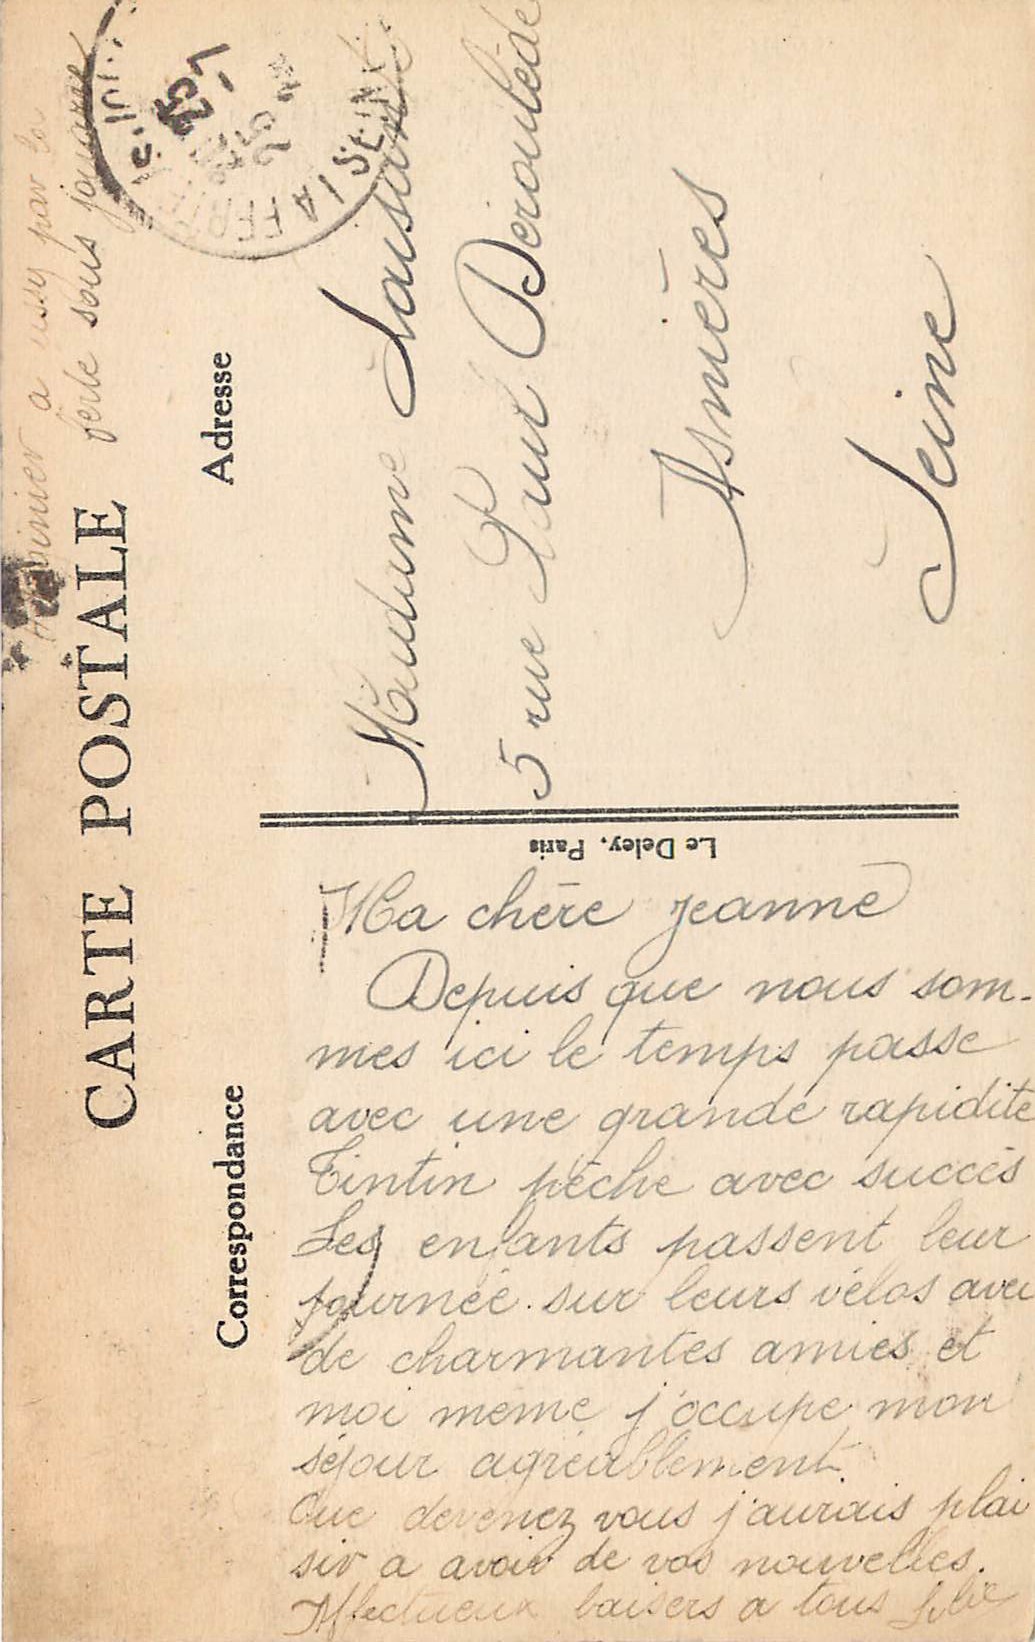 a ussy par la
ferte sous jouarre
CARTE POSTALE
Correspondance
Adresse
LA FERTE
SEINE
Madame
5 rue Paul Déroulède
Asnières
Seine
Le Deley, Paris
Ma chère Jeanne
Depuis que nous som-
mes ici le temps passe
avec une grande rapidité
Tintin pêche avec succès
Les enfants passent leur
journée sur leurs vélos avec
de charmantes amies et
moi meme j'occupe mon
séjour agréablement
Que devenez vous j'aurais plai
sir a avoir de vos nouvelles.
Affectueux baisers a tous